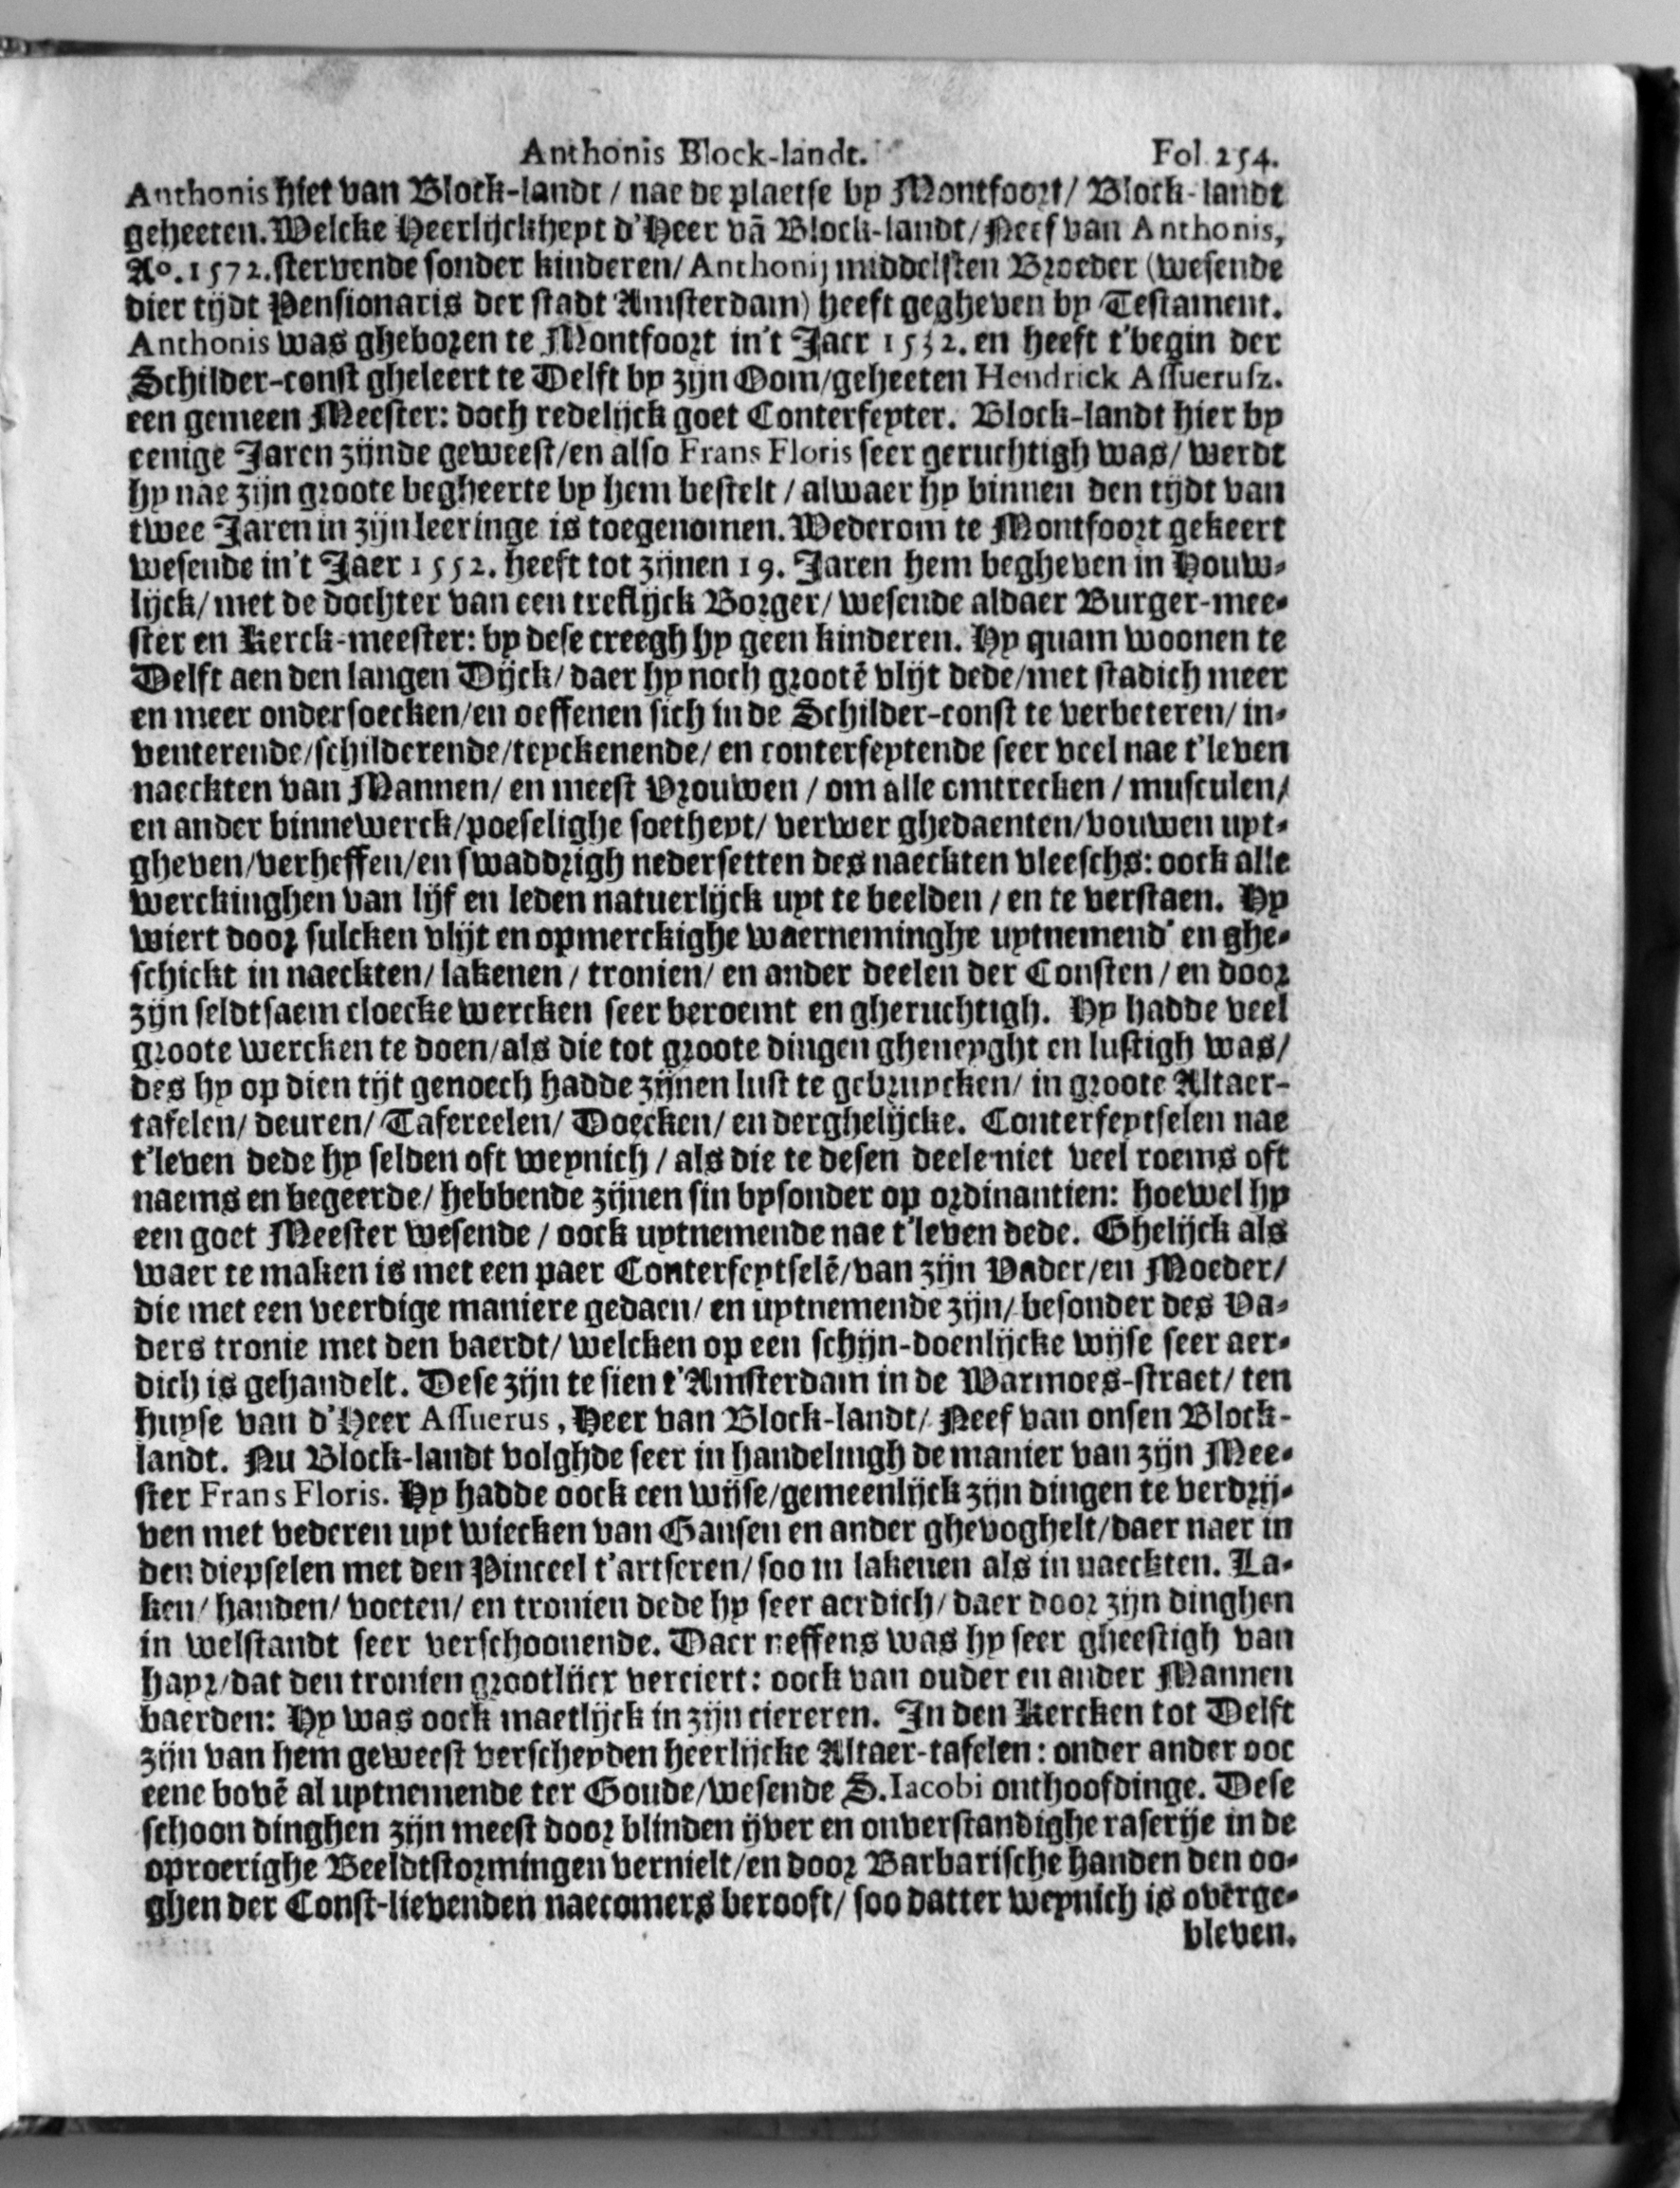 Anthonis Block-landt. Fol. 254.
Anthonis hiet van Block-landt / nae de plaetse by Montfoort / Block-landt
geheeten. Welcke Heerlijckheyt d'Heer vā Block-landt / Neef van Anthonis,
Aº. 1572. stervende sonder kinderen / Anthonij middelsten Broeder (wesende
dier tijdt Pensionaris der stadt Amsterdam) heeft gegheven by Testament.
Anthonis was gheboren te Montfoort in't Jaer 1532. en heeft t'begin der
Schilder-const gheleert te Delft by zijn Oom / geheeten Hendrick Assuerusz.
een gemeen Meester: doch redelijck goet Conterfeyter. Block-landt hier by
eenige Jaren zijnde geweest / en also Frans Floris seer geruchtigh was / werdt
hy nae zijn groote begheerte by hem bestelt / alwaer hy binnen den tijdt van
twee Jaren in zijn leeringe is toegenomen. Wederom te Montfoort gekeert
wesende in't Jaer 1552. heeft tot zijnen 19. Jaren hem begheven in Houw-
lijck / met de dochter van een treflijck Borger / wesende aldaer Burger-mee-
ster en Kerck-meester: by dese creegh hy geen kinderen. Hy quam woonen te
Delft aen den langen Dijck / daer hy noch grootē vlijt dede / met stadich meer
en meer ondersoecken / en oeffenen sich in de Schilder-const te verbeteren / in-
venterende / schilderende / teyckenende / en conterfeytende seer veel nae t'leven
naeckten van Mannen / en meest Vrouwen / om alle omtrecken / musculen /
en ander binnewerck / poeselighe soetheyt / verwer ghedaenten / vouwen uyt-
gheven / verheffen / en swaddrigh nedersetten des naeckten vleeschs: oock alle
werckinghen van lijf en leden natuerlijck uyt te beelden / en te verstaen. Hy
wiert door sulcken vlijt en opmerckighe waerneminghe uytnemend' en ghe-
schickt in naeckten / lakenen / tronien / en ander deelen der Consten / en door
zijn seldtsaem cloecke wercken seer beroemt en gheruchtigh. Hy hadde veel
groote wercken te doen / als die tot groote dingen gheneyght en lustigh was /
des hy op dien tijt genoech hadde zijnen lust te gebruycken / in groote Altaer-
tafelen / deuren / Tafereelen / Doecken / en derghelijcke. Conterfeytselen nae
t'leven dede hy selden oft weynich / als die te desen deele niet veel roems oft
naems en begeerde / hebbende zijnen sin bysonder op ordinantien: hoewel hy
een goet Meester wesende / oock uytnemende nae t'leven dede. Ghelijck als
waer te maken is met een paer Conterfeytselē / van zijn Vader / en Moeder /
die met een veerdige maniere gedaen / en uytnemende zijn / besonder des Va-
ders tronie met den baerdt / welcken op een schijn-doenlijcke wijse seer aer-
dich is gehandelt. Dese zijn te sien t'Amsterdam in de Warmoes-straet / ten
huyse van d'Heer Assuerus, Heer van Block-landt / Neef van onsen Block-
landt. Nu Block-landt volghde seer in handelingh de manier van zijn Mee-
ster Frans Floris. Hy hadde oock een wijse / gemeenlijck zijn dingen te verdrij-
ven met vederen uyt wiecken van Gansen en ander ghevoghelt / daer naer in
den diepselen met den Pinceel t'artseren / soo in lakenen als in naeckten. La-
ken / handen / voeten / en tronien dede hy seer aerdich / daer door zijn dinghen
in welstandt seer verschoonende. Daer neffens was hy seer gheestigh van
hayr / dat den tronien grootlijcx verciert: oock van ouder en ander Mannen
baerden: Hy was oock maetlijck in zijn ciereren. In den Kercken tot Delft
zijn van hem geweest verscheyden heerlijcke Altaer-tafelen: onder ander ooc
eene bovē al uytnemende ter Goude / wesende S. Iacobi onthoofdinge. Dese
schoon dinghen zijn meest door blinden ijver en onverstandighe raserije in de
oproerighe Beeldtstormingen vernielt / en door Barbarische handen den oo-
ghen der Const-lievenden naecomers berooft / soo datter weynich is overge-
bleven.